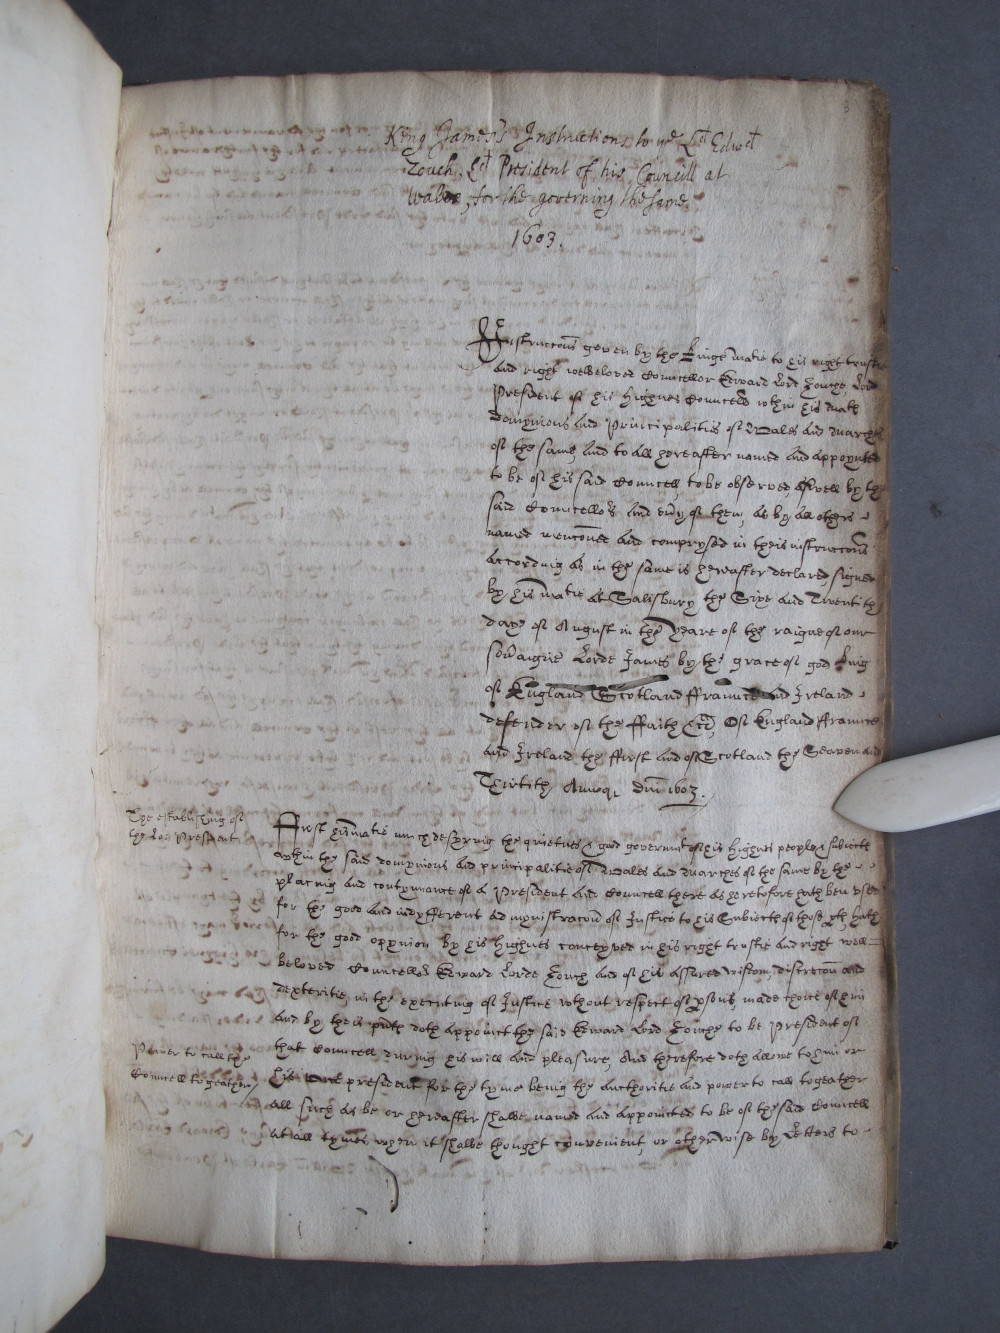 3
King James's Instructions to ye Ld Edwd
Zouch, Ld President of his Councill at
Wales, for the governing the same
1603.
Instruccons geven by the Kings Matie to his right trustie
and right welbeloved Councellor Edward Lord Zouche, Lord
President of his Highnes Councell wthin his
Domynions and Principalitie of Wales and Marches
of the same, and to all hereafter named and appoynted
to be of his said Councell, to be observed, aswell by the
said Councellors and eu'y of them, as by all others
named menconed and comprysed in theis instruccons
according as in the same is hereafter declared, signed
by his Matie at Salisbury the Sixe and Twentith
daye of August in the Yeare of the raigne of our
sou'aigne Lorde James by the grace of god King
of England Scotland ffraunce and Ireland
defender of the ffaith &c, Of England ffraunce
and Ireland the ffirst and of Scotland the Seaven and
Thirtith Annoq Dni 1603.
The establishing of
the Lo: President
First his Matie much desyring the quietnes & good governmt of his Highnes people & subiects
wthin the said domynions and principalitie of Wales and Marches of the same by the
placing and contynuance of a President and Councell there as heretofore hath ben vsed
for the good and indyfferent admynistracon of Justice to his Subiects of those hath
for the good oppinion by his Highnes conceyved in his right trustie and right well=
beloved Councellor Edward Lorde Zouch and of his assured wisdom, discrecon and
dexteritie, in the executing of Justice wthout respect of psons, made choice of him
and by theis pnts doth appoinct the said Edward Lord Zouche to be President of
that Councell during his will and pleasure, And therefore doth allowe to him or
Power to call the
Councell togeather
the president for the tyme being the authoritie and power to call togeather
all such as be or hereafter shalbe named and appointed to be of the said Councell
at all tymes when it shalbe thought convenient, or otherwise by Letters to